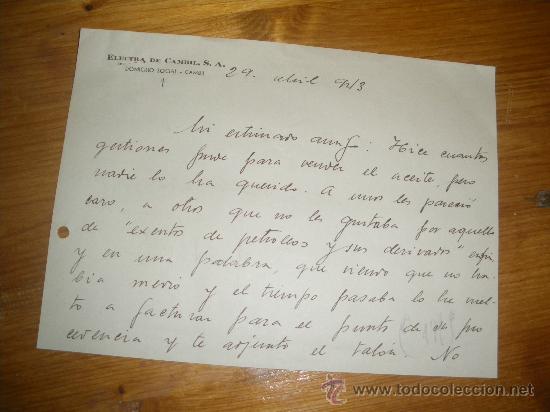 ELECTRA DE CAMBIL, S. A.
DOMICILIO SOCIAL - CAMBIL
29. abril 943
Mi estimado amigo: Hice cuantas
gestiones pude para vender el aceite, pero
nadie lo ha querido. A unos les pareció
caro, a otros que no les gustaba por aquello
de "exentos de petroleos y sus derivados"
y en una palabra, que viendo que no ha-
bia medio y el tiempo pasaba lo he vuel-
to a facturar para el punto de su pro
cedencia y te adjunto el talón No
todocoleccion
www.todocoleccion.net